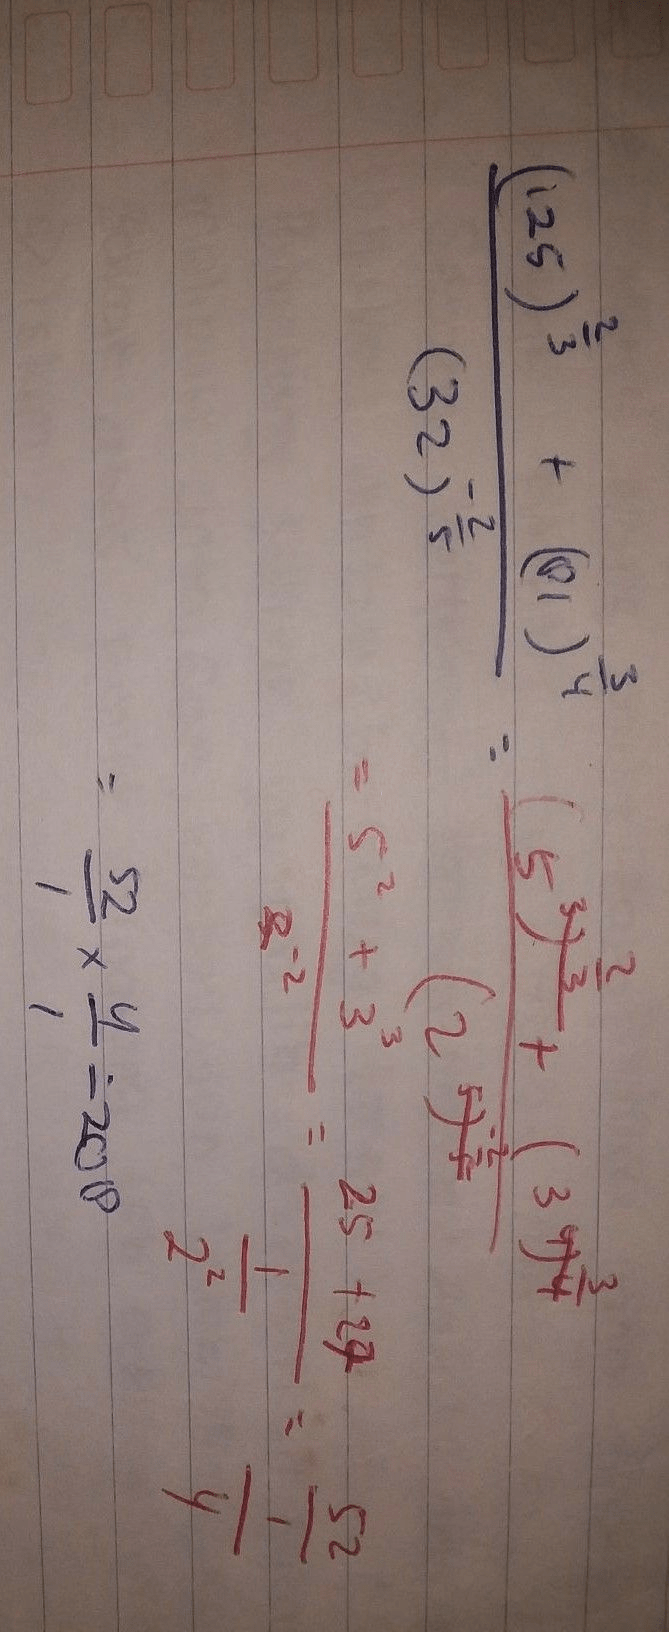 (125)^(2/3) + (81)^(3/4) / (32)^(-2/5) = (5^3)^(2/3) + (3^4)^(3/4) / (2^5)^(-2/5)
= 5^2 + 3^3 / 2^-2 = 25 + 27 / (1/2^2) = (52/1) / (1/4)
= 52/1 × 4/1 = 208